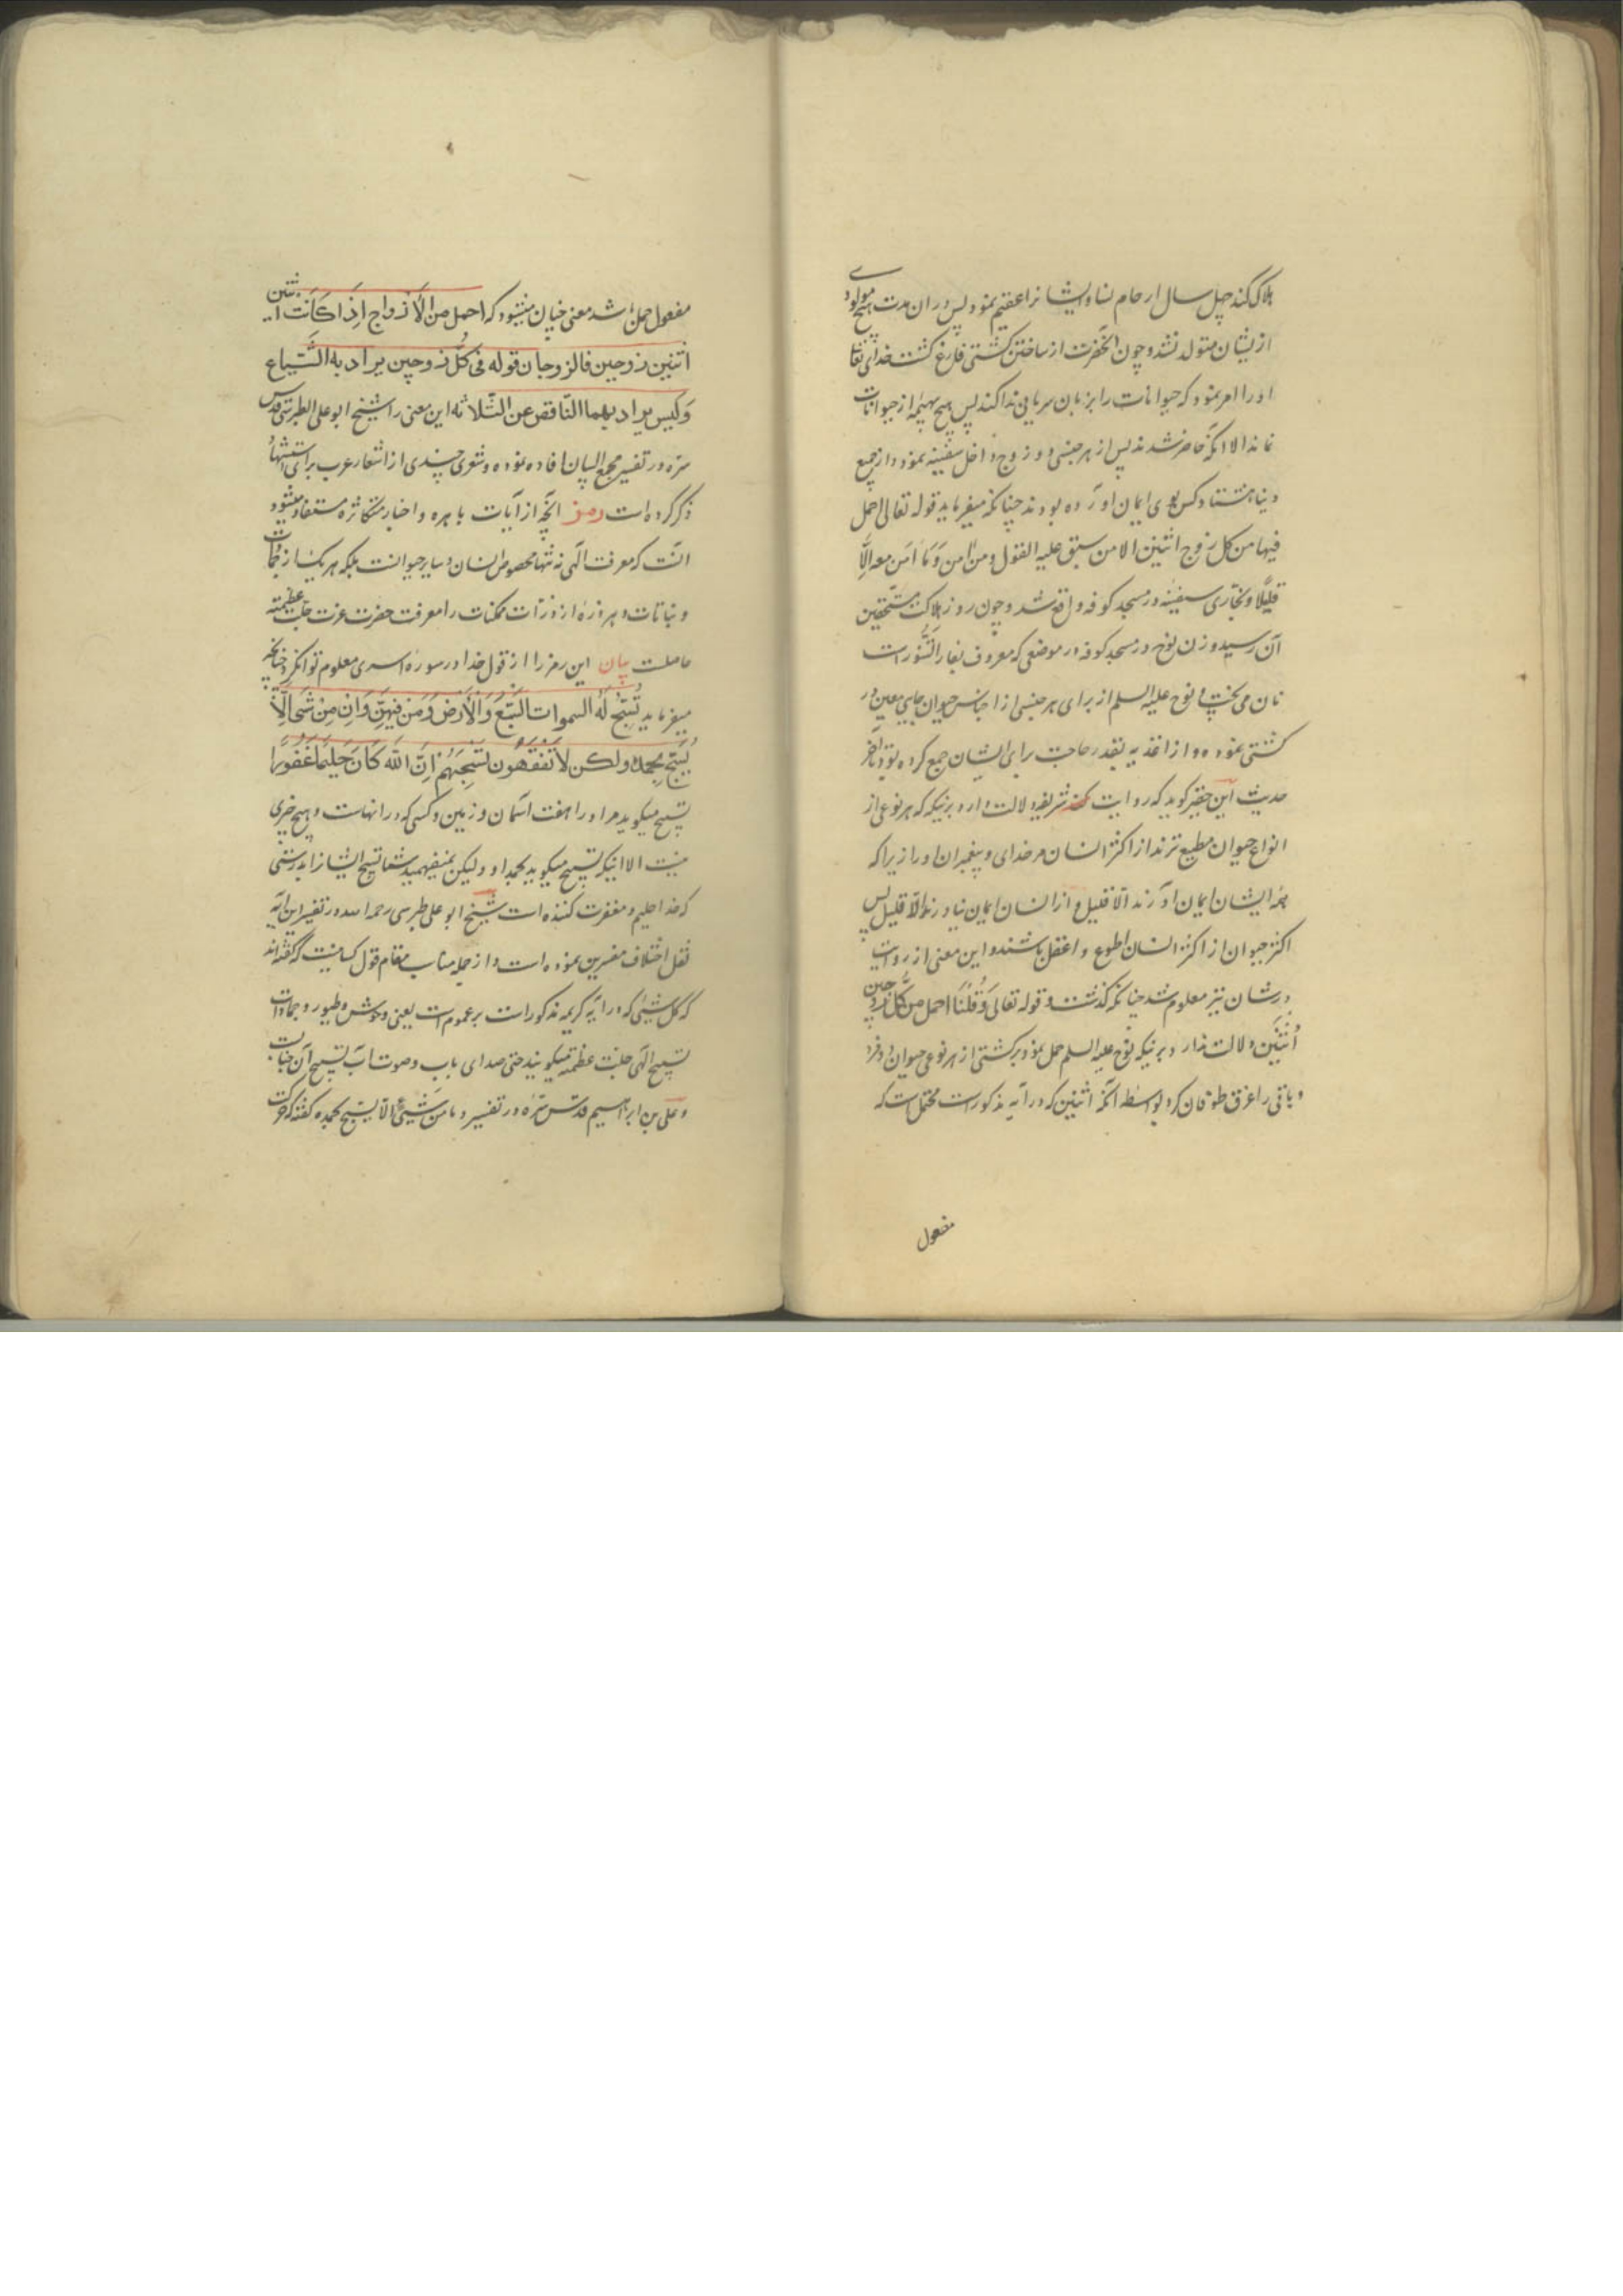 هلاک کند چهل سال ارحام نساء ایشانرا عقیم نمود پس در ان مدت هیچ مولودی
ازیشان متولد نشد و چون آنحضرت از ساختن کشتی فارغ کشت خدای تعالی
او را امر نمود که حیوانات را بزبان سریانی ندا کند پس هیچ بهیمه از حیوانات
نماند الا آنکه حاضر شدند پس از هر جنسی دو زوج داخل سفینه نمود و از جمیع
دنیا هشتاد کس بوی ایمان آورده بودند چنانکه میفرماید قوله تعالی احمل
فیها من کل زوج اثنین الا من سبق علیه القول ومن آمن وَمَا اٰمَن معه اِلَّا
قلیلًا و نجاری سفینه در مسجد کوفه واقع شد و چون روز هلاکت مستحقین
آن رسید و زن نوح در مسجد کوفه در موضعی که معروف بفار التَّنُّور است
نان می پخت و نوح علیه السلم از برای هر جنسی از اجناس حیوان جایی معین در
کشتی نموده و از اغذیه بقدر حاجت برای ایشان جمع کرده بود تا آخر
حدیث این حقیر کوید که روایت شریفه دلالت دارد برینکه که هر نوعی از
انواع حیوان مطیع ترند از اکثر انسان مر خدای و پیغمبران او را زیرا که
همه ایشان ایمان آورند الّا قلیل و از انسان ایمان نیاورند الّا قلیل پس
اکثر حیوان از اکثر انسان اطوع و اعقل باشند و این معنی از روایت
درشان نیز معلوم شد چنانکه کذشت و قوله تعالی وَقُلْنَا احمل من کُلّ زوجین
اُثنَین دلالت ندارد برینکه نوح علیه السلم حمل نمود بر کشتی از هر نوعی حیوان دو فرد
و باقی را غرق طوفان کرد بواسطه آنکه اثنین که در آیه مذکور است محتمل است که
مفعول
مفعول حمل باشد معنی چنان میشود که احمل من الاَزواج اِذَا کَانَت اثنین
اثنین زوجین فالزوجان قوله فی کلّ زوجین یراد به الشّیاع
وَلیس یراد بهما النّاقص عن الثّلاثه این معنی را شیخ ابو علی الطبرسی قدس
سرّه در تفسیر مجمع البیان افاده نموده و شعری چندی از اشعار عرب برای استشهاد
ذکر کرده است رمز آنچه از آیات باهره و اخبار متکاثره مستفاد میشود
آنست که معرفت الهی نه تنها مخصوص انسان و سایر حیوانست بلکه هر یک از جمادات
و نباتات و هر ذره از ذرات ممکنات را معرفت حضرت عزت جلت عظمته
حاصلست بیان این رمز را از قول خدا در سوره اسری معلوم توان کرد چنانچه
میفرماید تُسَبّحُ لَهُ السموات السّبع وَالاَرض وَمَن فیهِنّ وَاِن مِن شَی اِلّا
یُسَبّح بحمده ولکن لا تَفقَهُون تَسبیحَهُم اِنّ الله کَانَ حَلیماً غَفُوراً
تسبیح میکوید مر او را هفت آسمان و زمین و کسی که در آنهاست و هیچ چیزی
نیست الا اینکه تسبیح میکوید بحمد او ولیکن نمیفهمید شما تسبیح ایشانرا بدرستی
که خدا حلیم و مغفرت کننده است شیخ ابو علی طبرسی رحمه الله در تفسیر این آیه
نقل اختلاف مفسرین نموده است و از جمله مناسب مقام قول کسانیست که کفته اند
که کل شیئی که در آیه کریمه مذکور است بر عموم است یعنی وحوش و طیور و جمادات
تسبیح الهی جلت عظمته میکویند حتی صدای باب و صوت آب تسبیح آن جنابست
و علی بن ابراهیم قدس سرّه در تفسیر و ما من شَیئٍ الّا یسبّح بحمده کفته که حرکت